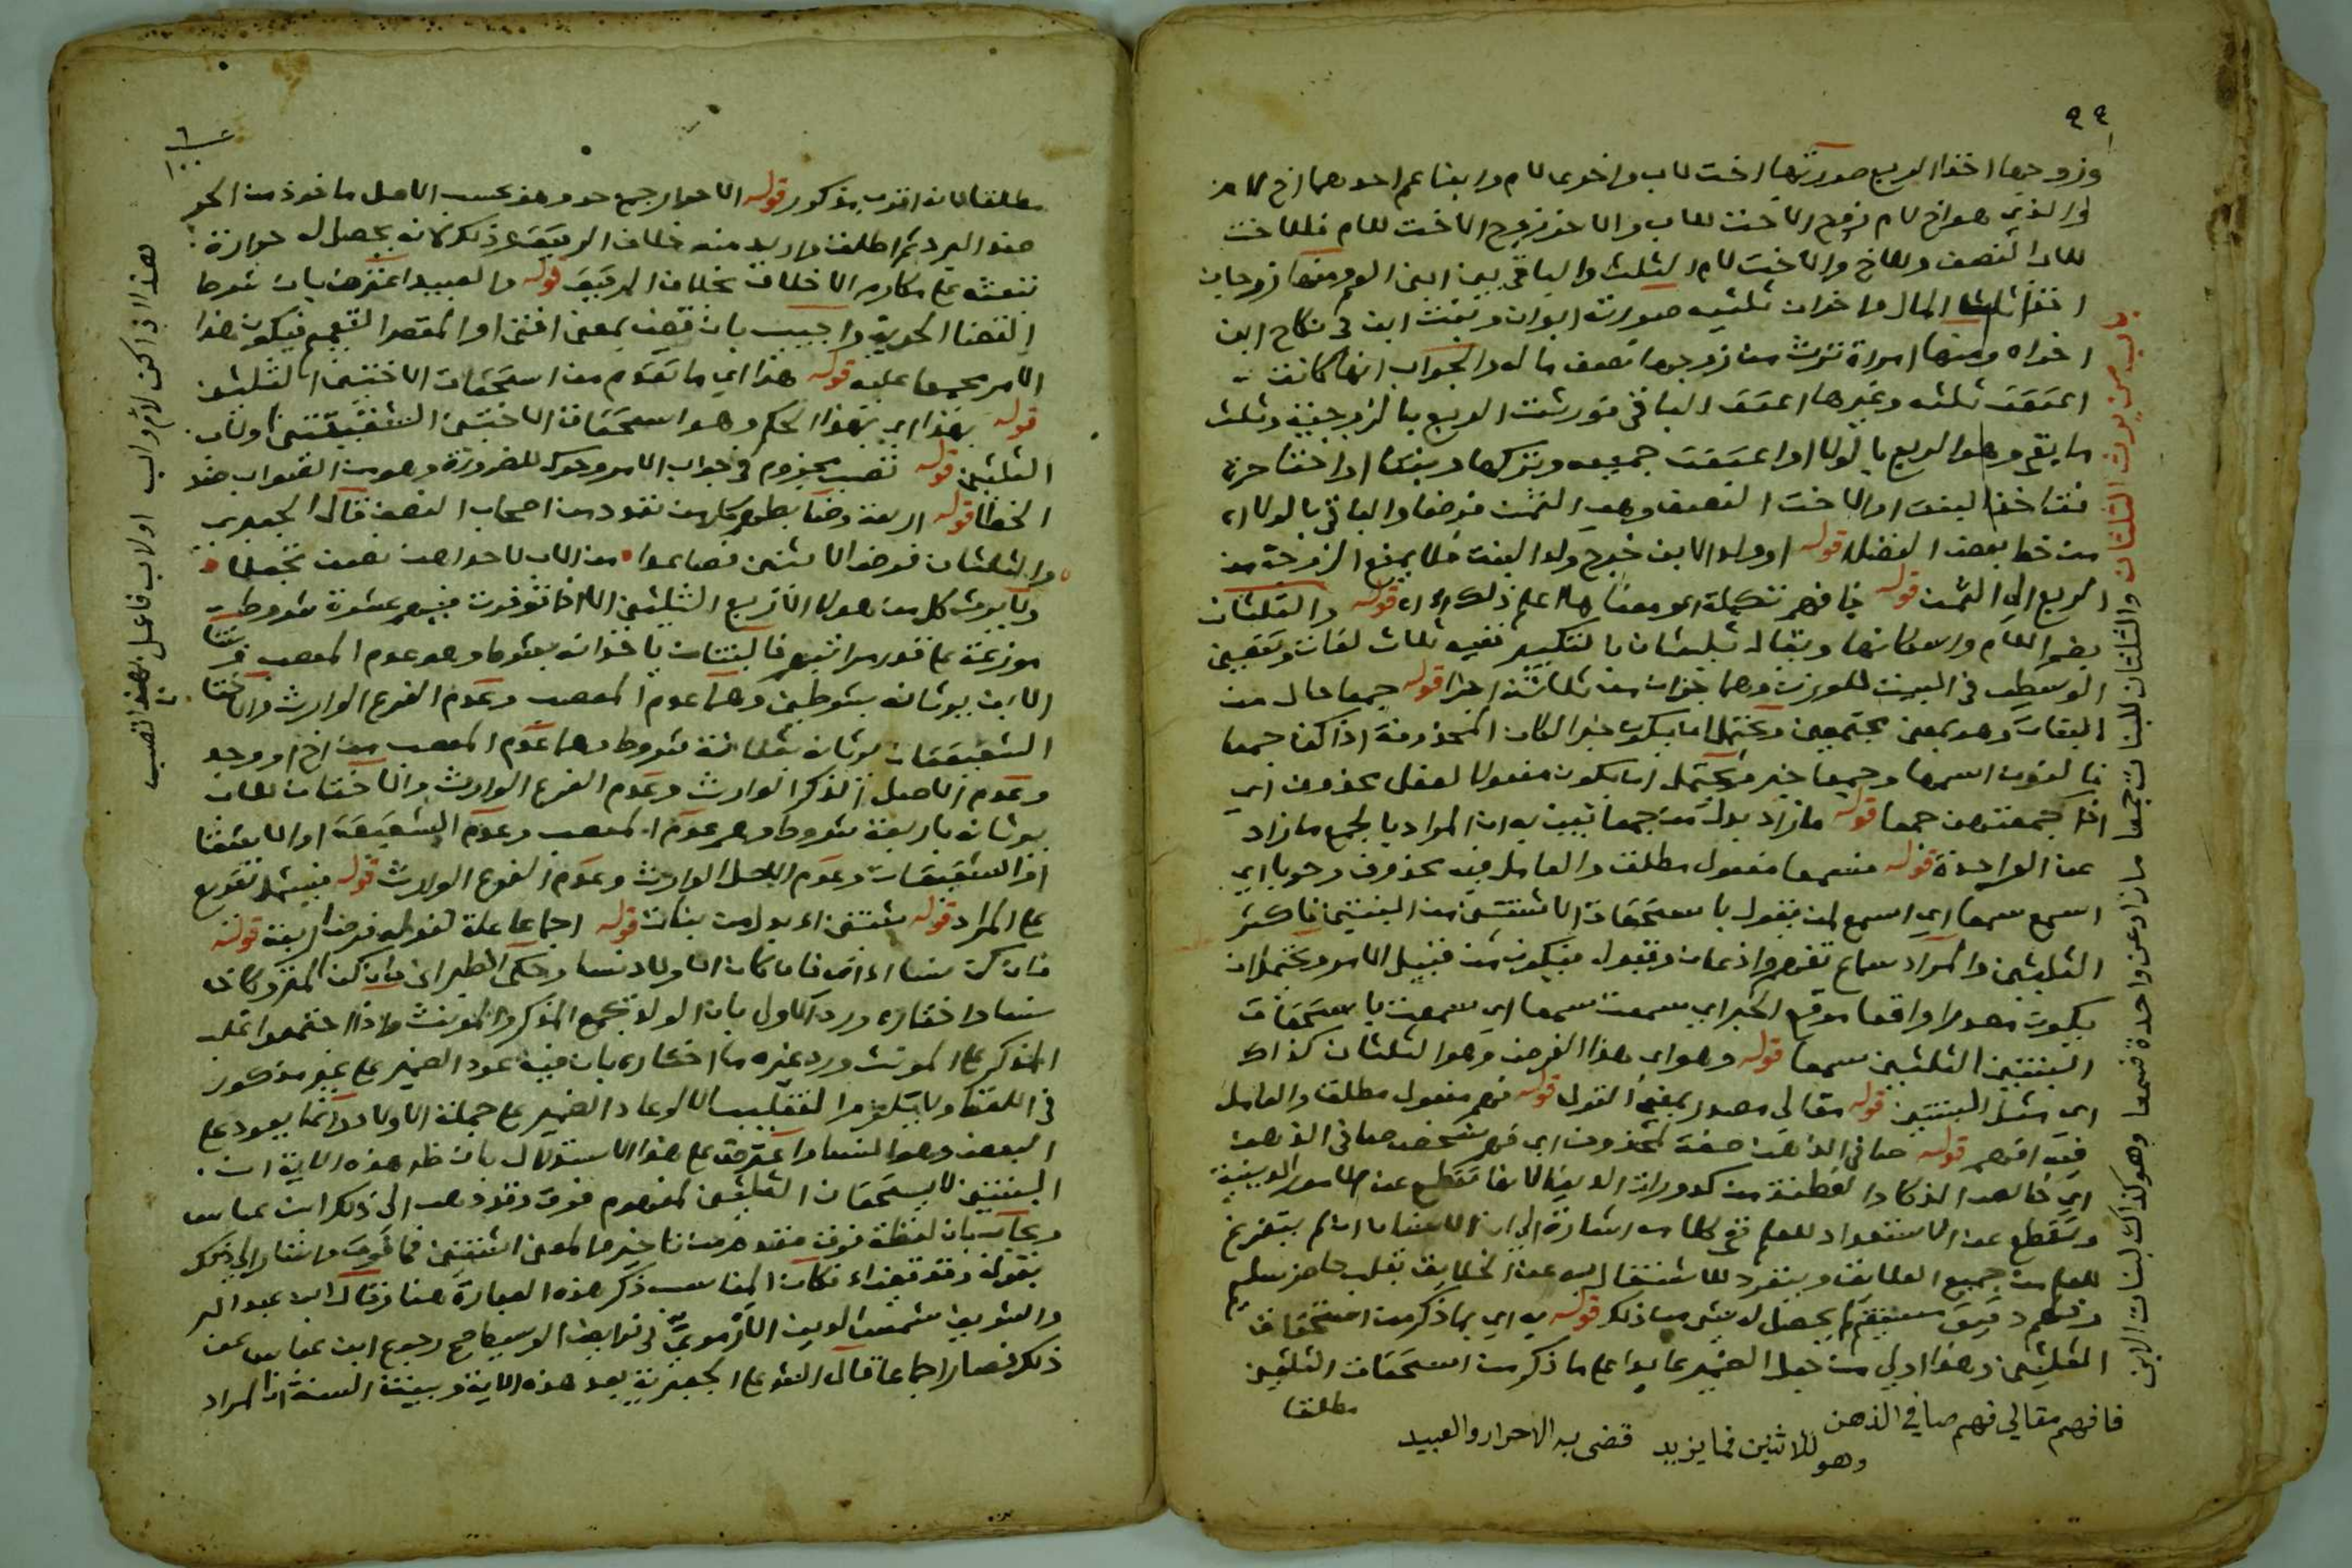 ٩٩
وزوجها اخذا الربع صورتها اخت لاب واخوي لام وابنا عم احدهما اخ لام
والذي هو اخ لام زوج الاخت للاب والاخر زوج الاخت للام فللاخت
للاب النصف وللاخ والاخت لام الثلث والباقي بين ابني العم ومنها زوجان
اخذا ثلث المال واخران ثلثيه صورته ابوان وبنت ابن في نكاح ابن
اخراه ومنها امراة ترث من زوجها نصف ماله والجواب انها كانت
اعتقت ثلثه وغيرها اعتق الباقي فورثت الربع بالزوجية وثلث
ما بقي وهو الربع بالولا او اعتقت جميعه وتركها وبنتا او اختا حرة
فتاخذ البنت او الاخت النصف وهي الثمن فرضا والباقي بالولاء
من خط بعض الفضلا قوله او ولد الابن خرج ولد البنت فلا يمنع الزوجة من
الربع الي الثمن قوله فافهم تكملة او معناه اعلم ذلك قوله والثلثان
بضم اللام واسكانها ويقال ثليثان بالتكبير ففيه ثلاث لغات وتعين
الوسطي في البيت للوزن وهما جزان من ثلاثة اجزا قوله جمعا حال من
البنات وهو بمعني مجتمعين ويحتمل ان يكون خبر لكان المحذوفة اذا كن جمعا
فالنون اسمها وجمعا خبر ويحتمل ان يكون مفعولا لفعل محذوف اي
اذا جمعتهن جمعا قوله ما زاد بدل من جمعا تبين به ان المراد بالجمع ما زاد
عن الواحدة قوله فسمعا مفعول مطلق والعامل فيه محذوف وجوبا اي
اسمع سمعا اي اسمع لمن يقول باستحقاق الاثنتين من البنتين فاكثر
الثلثين والمراد سماع تفهم واذعان وقبول فيكون من قبيل الامر ويحتمل ان
يكون مصدرا واقعا موقع الخبر اي سمعت سمعا اي سمعت باستحقاق
البنتين الثلثين سمعا قوله وهو اي هذا الفرض وهو الثلثان كذاك
اي مثل البنتين قوله مقالي مصدر بمعني القول قوله فهم مفعول مطلق والعامل
فيه افهم قوله صافي الذهن صفة لمحذوف اي فهم شخص صافي الذهن
اي خالص الذكا والفطنة من كدورات الدنيا لانها تقطع عن الامور الدينية
وتقطع عن الاستعداد للعلم ففي كلامه اشارة الي ان الانسان ان لم يتفرغ
للعلم من جميع العلايق وينفرد للاشتغال به عن الخلايق بقلب حاضر سليم
وفهم دقيق مستقيم لم يحصل له شي من ذلك قوله به اي بما ذكر من استحقاق
الثلثين وهذا اولي من جعل الضمير عايدا علي ما ذكر من استحقاق الثلثين
مطلقا
فافهم مقالي فهم صافي الذهن
وهو للاثنين فما يزيد قضي به الاحرار والعبيد
باب من يرث الثلثان والثلثان للبنات جمعا ما زاد عن واحدة فسمعا وهو كذاك لبنات الابن
١٠٠
مطلقا لانه اقرب مذكور قوله الاحرار جمع حر وهو بحسب الاصل ماخوذ من الحر
ضد البرد ثم اطلق واريد منه خلاف الرقيق وذلك لانه يحصل له حرارة
تبعثه علي مكارم الاخلاق بخلاف الرقيق قوله والعبيد اعترض بان شرط
القضا الحرية واجيب بان قضي بمعني افتي او المقصد التعميم فيكون هذا
الامر مجمعا عليه قوله هذا اي ما تقدم من استحقاق الاختين الثلثين
قوله بهذا اي بهذا الحكم وهو استحقاق الاختين الشقيقتين او لاب
الثلثين قوله تصب مجزوم في جواب الامر وحرك للضرورة وهو من الصواب ضد
الخطا قوله اربعة وضابطهم كل من تعدد من اصحاب النصف قال الجعبري
والثلثان فرض الاثنتين فصاعدا من اللات لاحداهن نصف تجعلا
ولا يرث كل من هولا الاربع الثلثين الا اذا توفرت فيهم عشرة شروط
موزعة علي قدر مراتبهم فالبنتان ياخذانه بشرط وهو عدم المعصب وبنتا
الابن يرثانه بشرطين وهما عدم المعصب وعدم الفرع الوارث والاختان
الشقيقتان يرثانه بثلاثة شروط وهما عدم المعصب من اخ او وجد
وعدم الاصل الذكر الوارث وعدم الفرع الوارث والاختان للاب
يرثانه باربعة شروط وهم عدم المعصب وعدم الشقيقة او الاشقا
او الشقيقات وعدم الاصل الوارث وعدم الفرع الوارث قوله
علي المراد قوله ثنتين اء بدل من بنات قوله اجماعا علة لقوله فرض اربعة قوله
فان كن نساء اء اي فان كان الاولاد نسا وحكي الطبراني فان كن المتروكات
نسا واختاره ورد الاول بان الولد يجمع المذكر والمونث واذا اجتمعوا غلب
المذكر علي المونث ورد غيره ما اختاره بان فيه عود الضمير علي غير مذكور
في اللفظ ولا يلزم التغليب الا لو عاد الضمير علي جملة الاولاد وانما يعود علي
البعض وهو النسا واعترض علي هذا الاستدلال بان ظاهر هذه الاية ان
البنتين لا يستحقان الثلثين لمفهوم فوق وقد ذهب الي ذلك ابن عباس
ويجاب بان لفظة فوق مقدم من تاخير والمعني اثنتين فما فوق واشار الي ذلك
بقوله وقد تعزاء فكان المناسب ذكر هذه العبارة هنا وقال ابن عبد البر
والشريف شمس الدين الارموي في فرايض الوسيط صح رجوع ابن عباس عن
ذلك فصار اجماعا قال الشارح الجعبرية بعد هذه الاية وبينت السنة ان المراد
هذا اذا كن لام واب او لاب فاعمل بهذا تصب